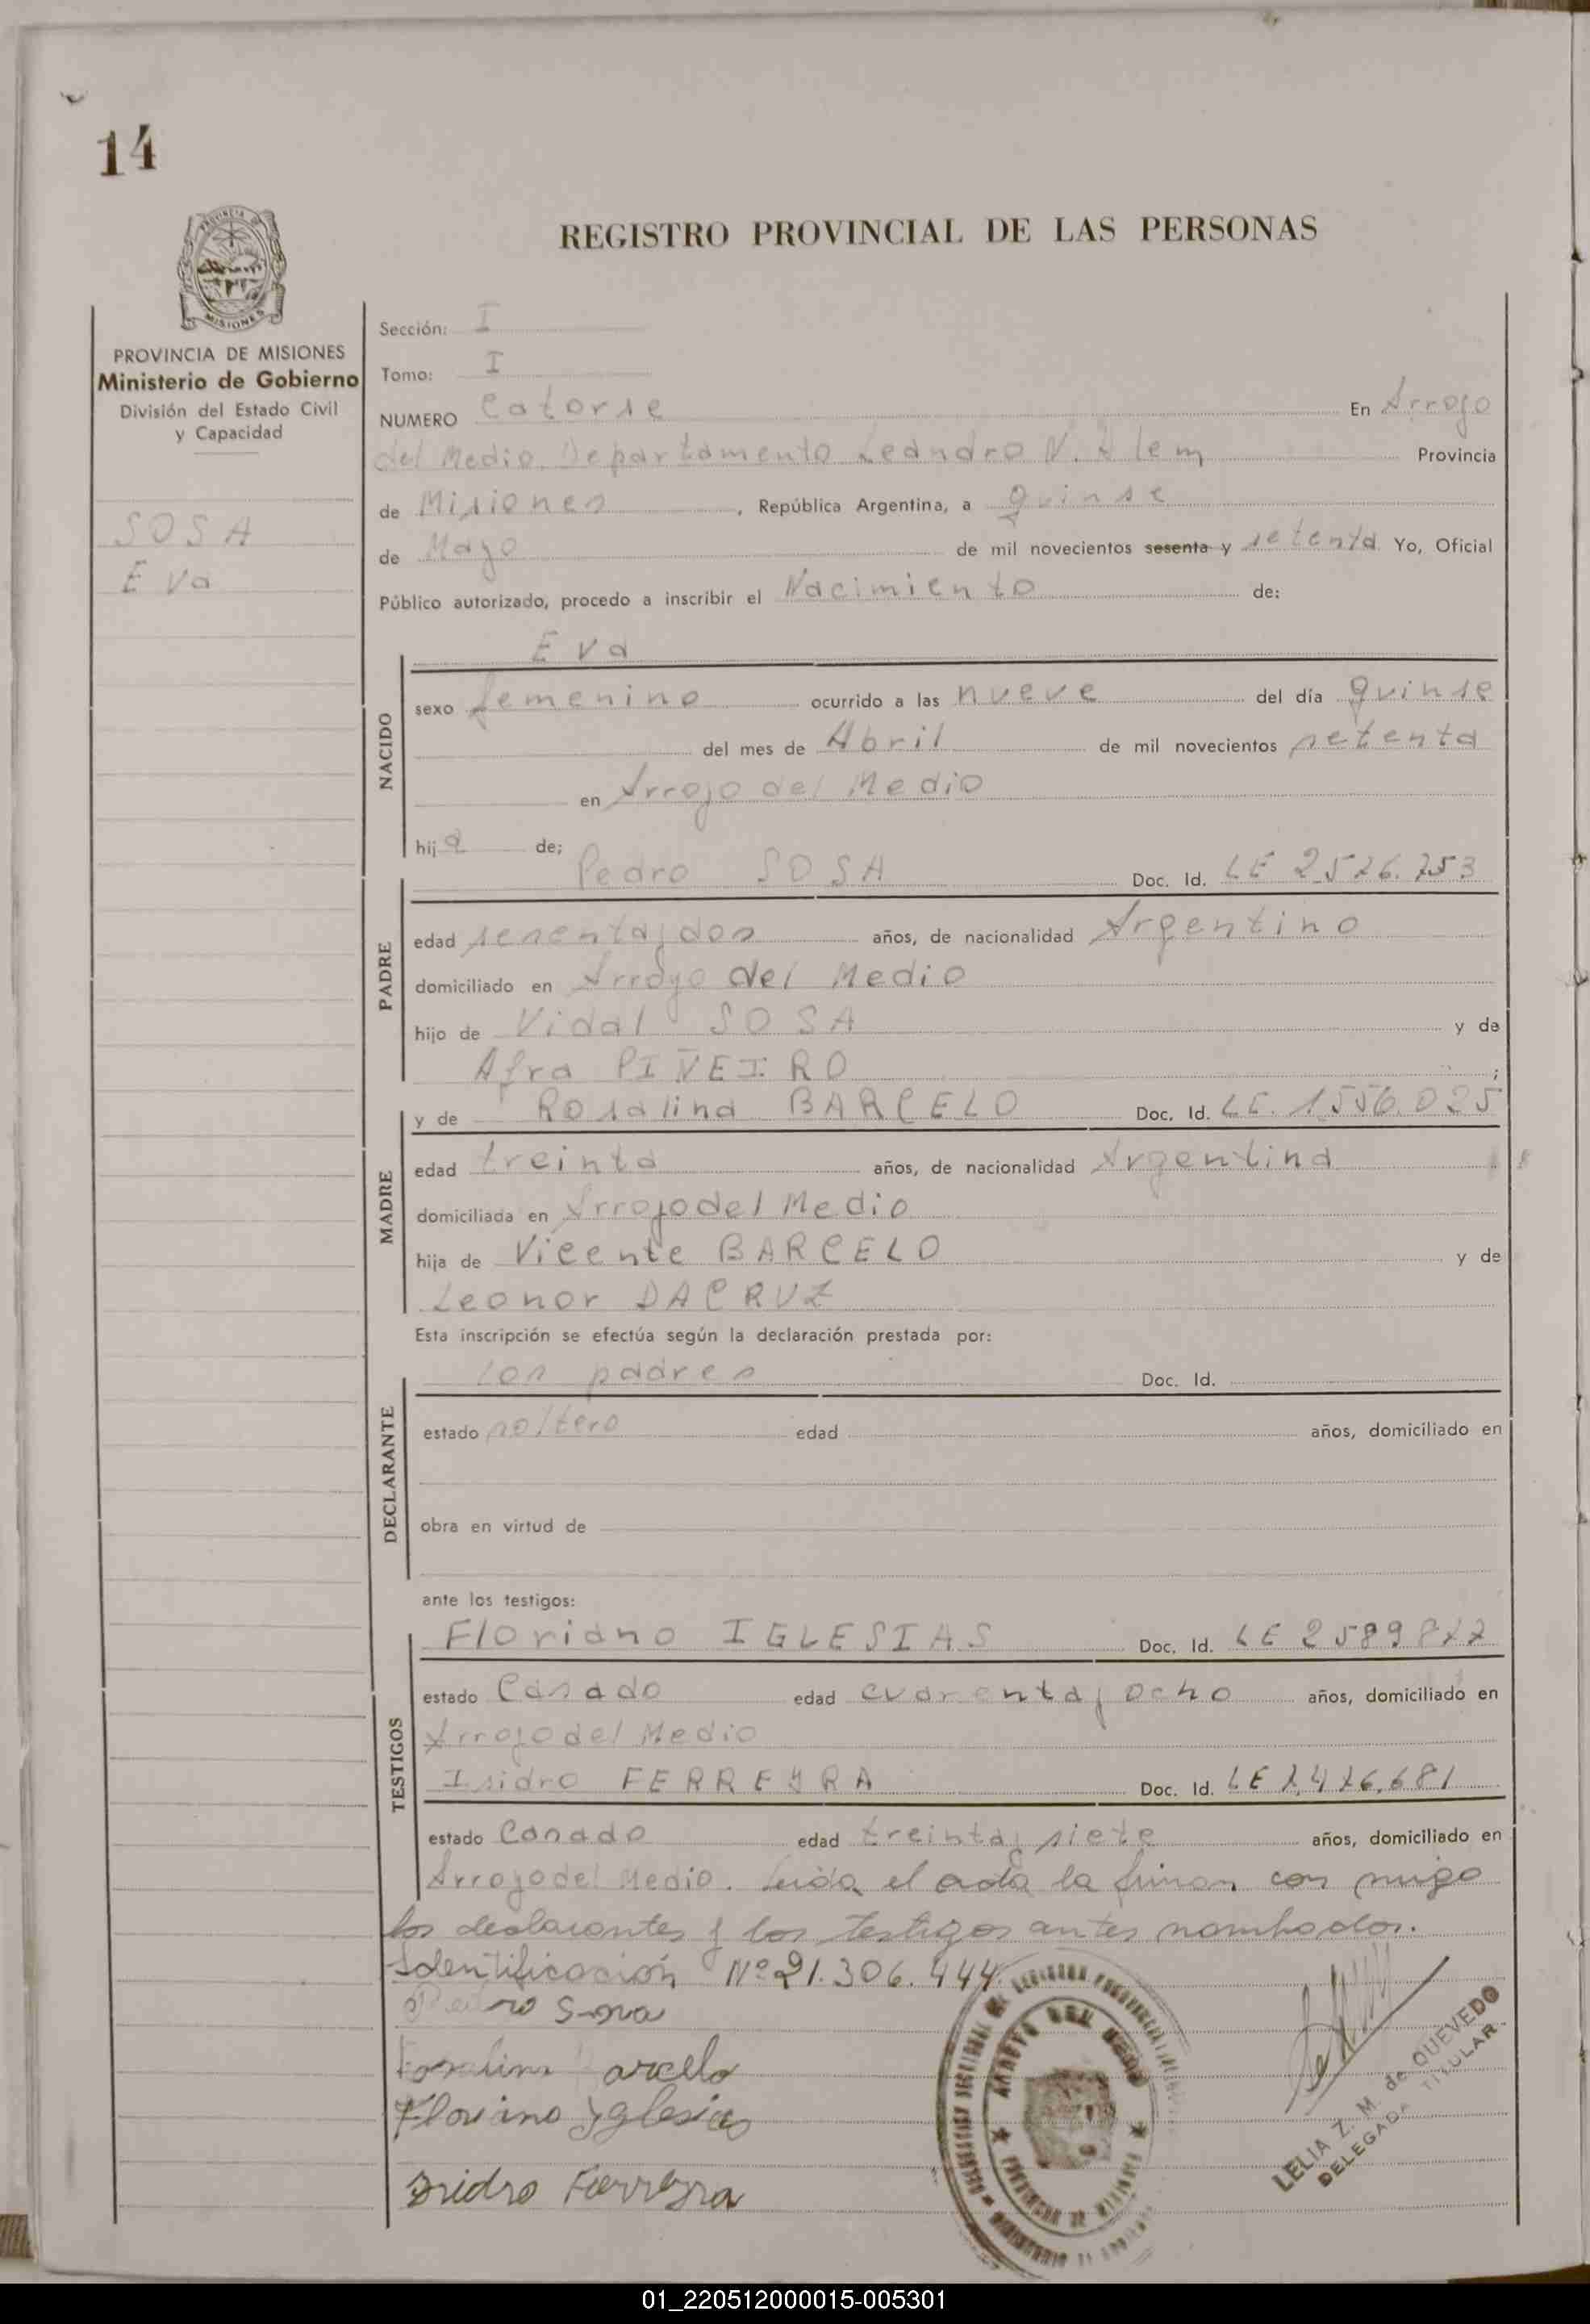 14
REGISTRO PROVINCIAL DE LAS PERSONAS
MISIONES
PROVINCIA DE MISIONES
Ministerio de Gobierno
División del Estado Civil
y Capacidad
SOSA
Eva
Sección: I
Tomo: I
NUMERO Catorse En Arroyo
del Medio. Departamento Leandro N. Alem Provincia
de Misiones, República Argentina, a quinse
de Mayo de mil novecientos sesenta y setenta Yo, Oficial
Público autorizado, procedo a inscribir el Nacimiento de:
NACIDO
Eva
sexo femenino ocurrido a las nueve del día quinse
del mes de Abril de mil novecientos setenta
en Arroyo del Medio
hija de;
PADRE
Pedro SOSA Doc. Id. LE 2526.753
edad sesenta y dos años, de nacionalidad Argentino
domiciliado en Arroyo del Medio
hijo de Vidal SOSA y de
Afra PIÑEIRO ;
MADRE
y de Rosalina BARCELO Doc. Id. LE. 1556.025
edad treinta años, de nacionalidad Argentina
domiciliada en Arroyo del Medio
hija de Vicente BARCELO y de
Leonor DACRUZ
Esta inscripción se efectúa según la declaración prestada por:
DECLARANTE
los padres Doc. Id.
estado soltero edad años, domiciliado en
obra en virtud de
ante los testigos:
TESTIGOS
Floriano IGLESIAS Doc. Id. LE
estado Casado edad cuarenta y ocho años, domiciliado en
Arroyo del Medio
Isidro FERREYRA Doc. Id. LE
estado Casado edad treinta y siete años, domiciliado en
Arroyo del Medio. Leida el acta la firman con migo
los declarantes y los testigos antes nombrados.
Identificación Nº 21.306.444.
Pedro Sosa
Rosalina Barcelo
Floriano Yglesias
Isidro Ferreyra
ARROYO DEL MEDIO
LELIA Z. M. de QUEVEDO
DELEGADA TITULAR
01_220512000015-005301